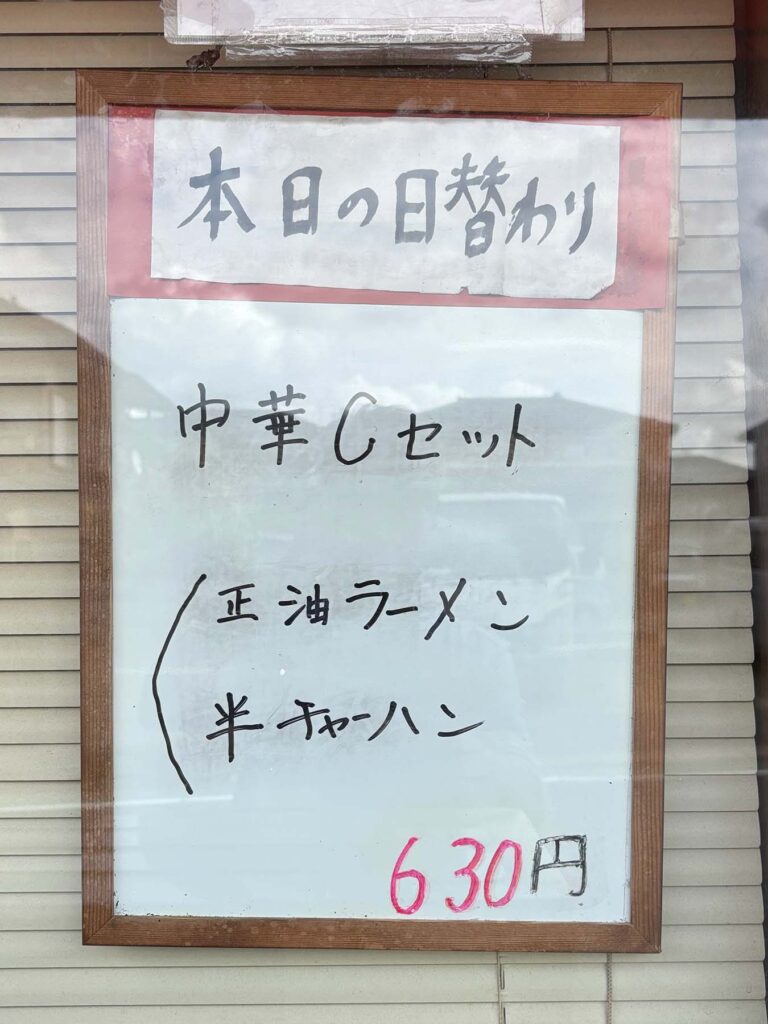 本日の日替わり
中華Cセット
正油ラーメン
半チャーハン
630円